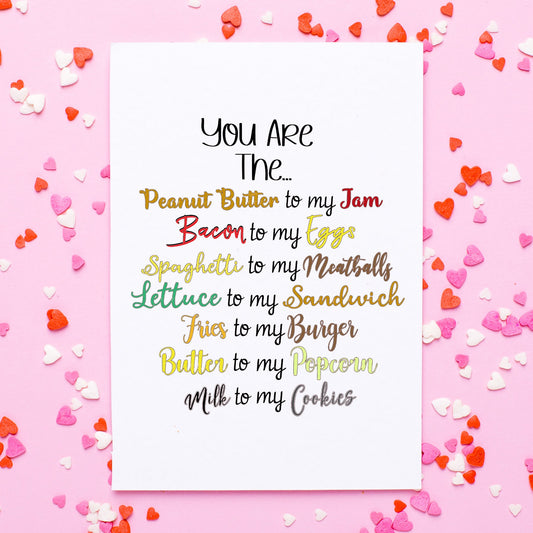 You Are
The...
Peanut Butter to my Jam
Bacon to my Eggs
Spaghetti to my Meatballs
Lettuce to my Sandwich
Fries to my Burger
Butter to my Popcorn
Milk to my Cookies